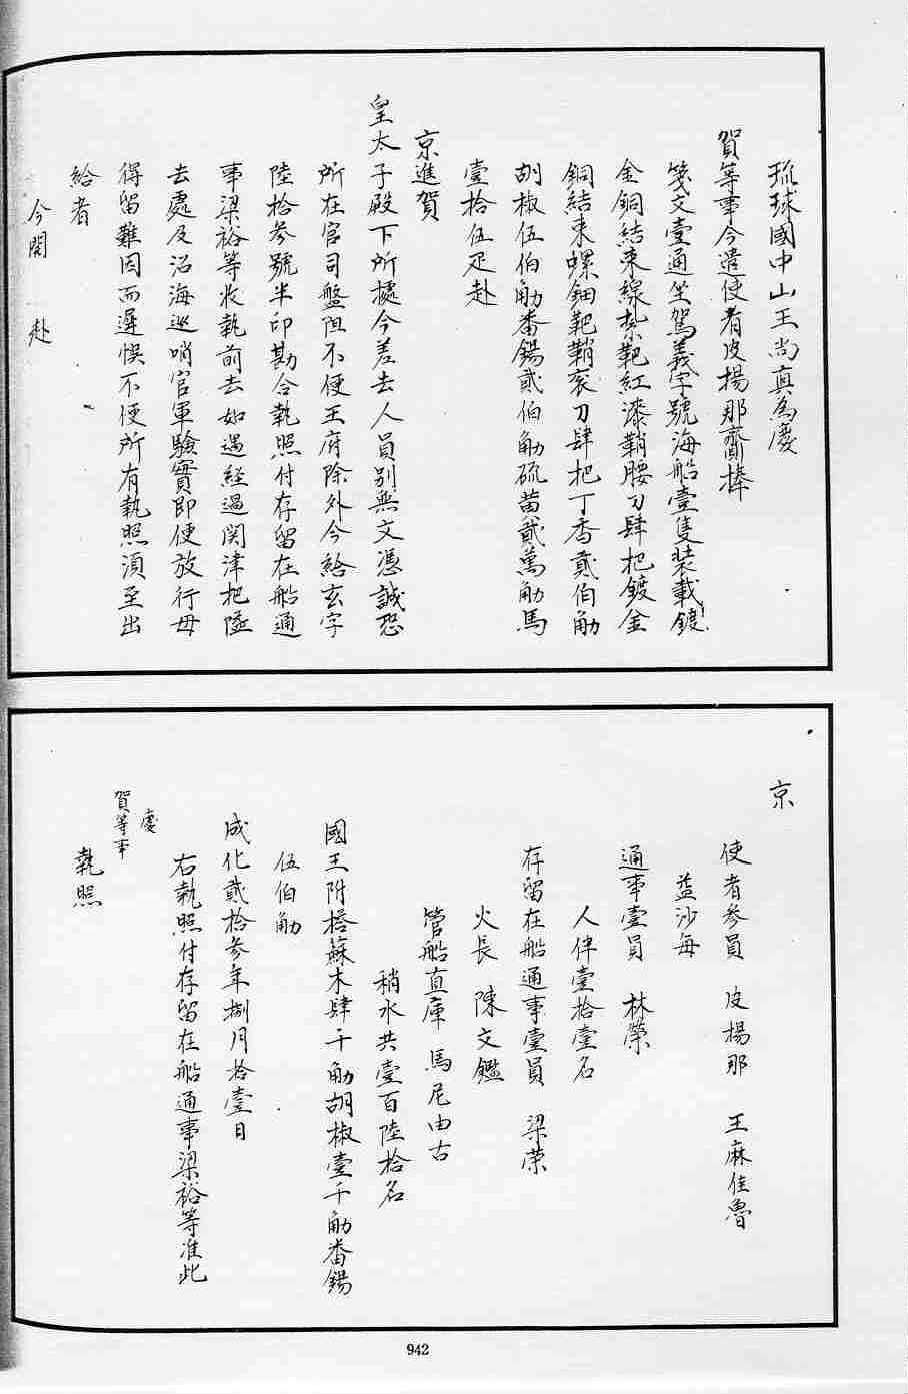 琉球國中山王尚真為慶
賀等事今遣使者皮揚那齎捧
箋文壹通坐駕義字號海船壹隻裝載鍍
金銅結束線紮靶紅漆鞘腰刀肆把鍍金
銅結束螺鈿靶鞘衮刀肆把丁香貳伯觔
胡椒伍伯觔番錫貳伯觔硫黃貳萬觔馬
壹拾伍疋赴
京進賀
皇太子殿下所據今差去人員別無文憑誠恐
所在官司盤阻不便王府除外今給玄字
陸拾參號半印勘合執照付存留在船通
事梁裕等收執前去如遇經過関津把隘
去處及沿海巡哨官軍驗實即便放行毋
得留難因而遲悞不便所有執照須至出
給者
今開 赴
京
使者參員 皮揚那 王麻佳魯
益沙每
通事壹員 林榮
人伴壹拾壹名
存留在船通事壹員 梁榮
火長 陳文鑑
管船直庫 馬尼由古
稍水共壹百陸拾名
國王附搭蘇木肆千觔胡椒壹千觔番錫
伍伯觔
成化貳拾參年捌月拾壹日
右執照付存留在船通事梁裕等准此
慶
賀等事
執照
942